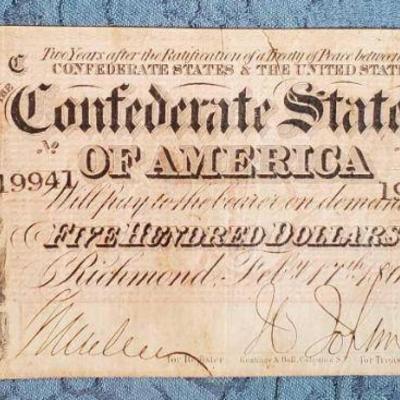 C Two Years after the Ratification of a Treaty of Peace between
CONFEDERATE STATES & THE UNITED STAT
THE
Confederate State
No OF AMERICA
19941 19
Will pay to the bearer on deman
FIVE HUNDRED DOLLARS
Richmond, Feb. 17th 18
for Register Keatinge & Ball, Columbia, S.C. for Treas